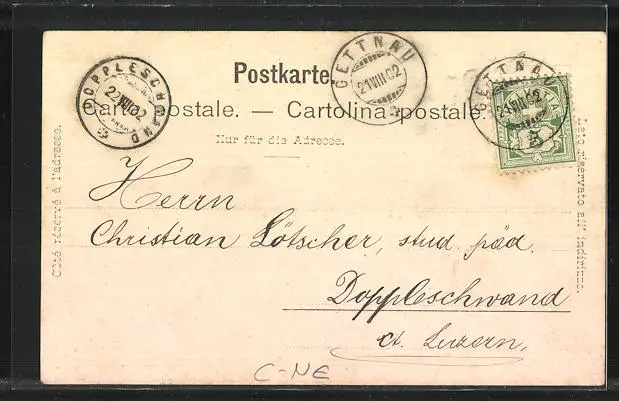 DOPPLESCHWAND
22.VIII.02
GETTNAU
21.VIII.02
GETTNAU
21.VIII.02
5
Postkarte.
Carte postale. — Cartolina postale.
Nur für die Adresse.
Côté réservé à l'adresse.
Lato riservato all' indirizzo.
Herrn
Christian Lötscher, stud. päd.
Doppleschwand
ct. Luzern.
C-NE